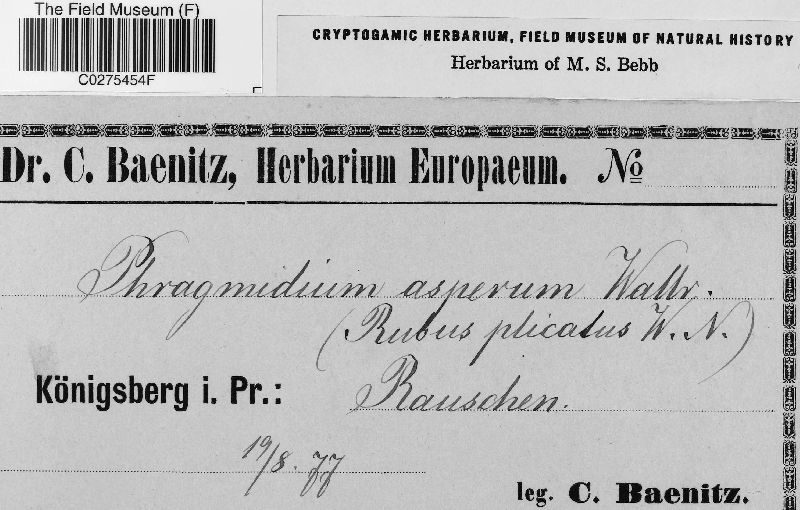 The Field Museum (F)
C0275454F
CRYPTOGAMIC HERBARIUM, FIELD MUSEUM OF NATURAL HISTORY
Herbarium of M. S. Bebb
Dr. C. Baenitz, Herbarium Europaeum. No
Phragmidium asperum Wallr.
(Rubus plicatus W. N.)
Königsberg i. Pr.: Rauschen.
19/8. 77
leg. C. Baenitz.